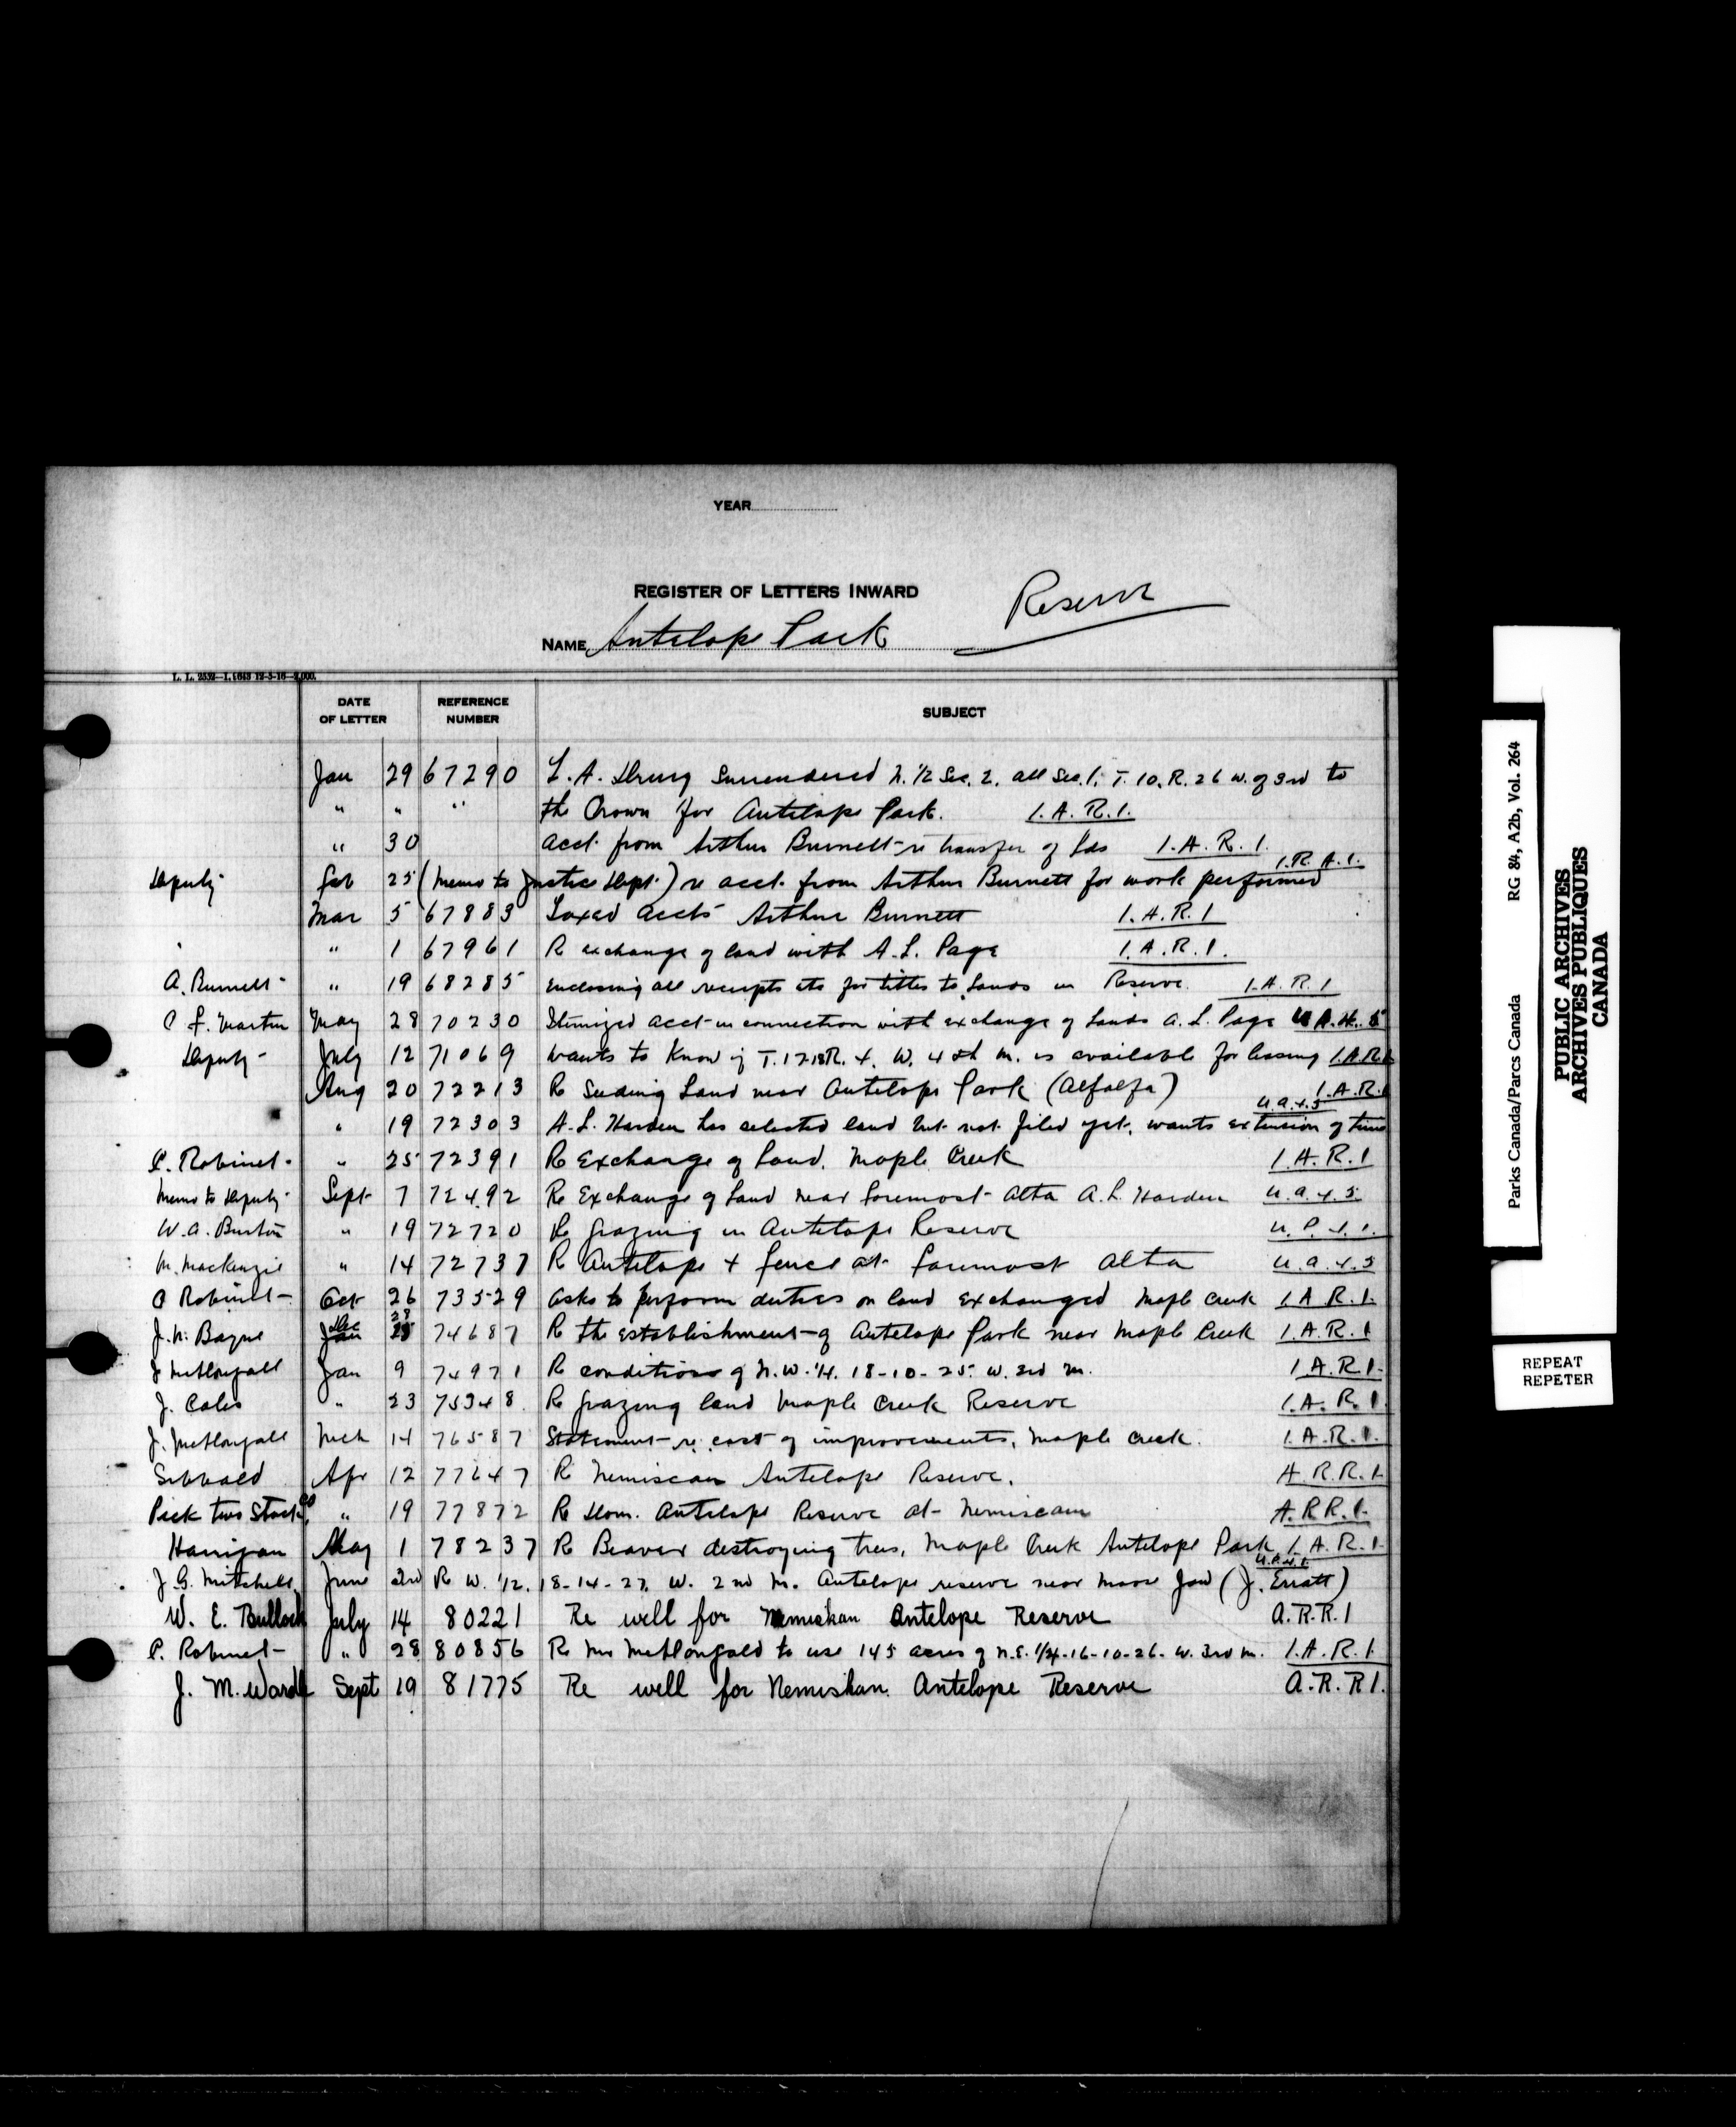 YEAR
REGISTER OF LETTERS INWARD
Reserve
NAME Antelope Park
L. L. 2552—I. 1643 12-5-16—2,000.
DATE OF LETTER REFERENCE NUMBER SUBJECT
Jan 29 67290 L. A. Drury Surrendered N. 1/2 Sec. 2. all Sec. 1. T. 10. R. 26 W. of 3rd to
" " " the Crown for Antelope Park. I.A.R.1.
" 30 acct. from Arthur Burnett re transfer of lds I.A.R.1.
Deputy Feb 25 (Memo to Justice Dept.) re acct. from Arthur Burnett for work performed I.R.A.1.
Mar 5 67883 Taxed accts Arthur Burnett I.A.R.1
" 1 67961 Re exchange of land with A. L. Page I.A.R.1.
A. Burnett " 19 68285 enclosing all receipts etc for titles to lands in Reserve. I.A.R.1
May 28 70230 Itemized acct in connection with exchange of lands A. L. Page
Deputy July 12 71069 wants to know if T. 17-18 R. 4. W. 4th M. is available for leasing I.A.R.1
Aug 20 72213 Re Seeding Land near Antelope Park (Alfalfa) I.A.R.1
" 19 72303 A. L. Harden has selected land but not filed yet, wants extension of time U.A.4.5
P. Robinet " 25 72391 Re Exchange of Land. Maple Creek I.A.R.1
Memo to Deputy Sept 7 72492 Re Exchange of Land near Foremost Alta A. L. Harden U.A.4.5
W. A. Burton " 19 72720 Re grazing in Antelope Reserve
M. Mackenzie " 14 72737 Re Antelope + fence at Foremost Alta U.A.4.5
P Robinet Oct 26 73529 asks to perform duties on land exchanged Maple Creek I.A.R.1.
J. N. Bayne Dec 28 74687 Re the establishment of Antelope Park near Maple Creek I.A.R.1
J McDougall Jan 9 74971 Re conditions of N.W. 1/4. 18-10-25. W. 3rd M. I.A.R.1.
J. Coles " 23 75348 Re grazing land Maple Creek Reserve I.A.R.1
J. McDougall Mch 14 76587 Statement re cost of improvements, Maple Creek. I.A.R.1.
Sibbald Apr 12 77647 Re Nemiscam Antelope Reserve. A.R.R.1
" 19 77872 Re Dom. Antelope Reserve at Nemiscam A.R.R.1.
Hanigan May 1 78237 Re Beaver destroying trees, Maple Creek Antelope Park I.A.R.1.
J. G. Mitchell June 2nd Re W. 1/2. 18-14-27. W. 2nd M. Antelope reserve near Moose Jaw (J. Erratt)
W. E. Bullock July 14 80221 Re well for Nemiskan Antelope Reserve A.R.R.1
P. Robinet " 28 80856 Re Mr McDougald to use 145 acres of N.E. 1/4-16-10-26- W. 3rd M. I.A.R.1
J. M. Wardle Sept 19 81775 Re well for Nemiskan Antelope Reserve A.R.R1.
Parks Canada/Parcs Canada RG 84, A2b, Vol. 264
PUBLIC ARCHIVES
ARCHIVES PUBLIQUES
CANADA
REPEAT
REPETER